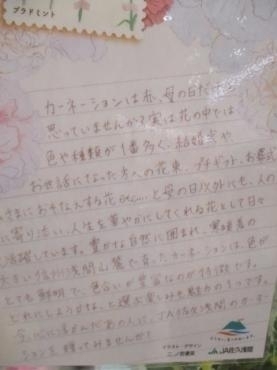 プラドミント
カーネーションは赤、母の日だけと
思っていませんか?実は花の中では
色や種類が1番多く、結婚式や
お世話になった方への花束、プチギフト、お葬式
さまにおそなえする花etc... と母の日以外にも、人の
に寄り添い、人生を華やかにしてくれる花として日々
活躍しています。豊かな自然に囲まれ、寒暖差の
大きい信州浅間山麓で育ったカーネーションは、色が
とても鮮明で、色合いが豊富なのが特徴です。
どれにしようかな、と選ぶ楽しみも魅力の1つです。
今、心に浮かんだあの人に、JA佐久浅間のカーネー
ションを贈ってみませんか?
イラスト・デザイン
JA佐久浅間